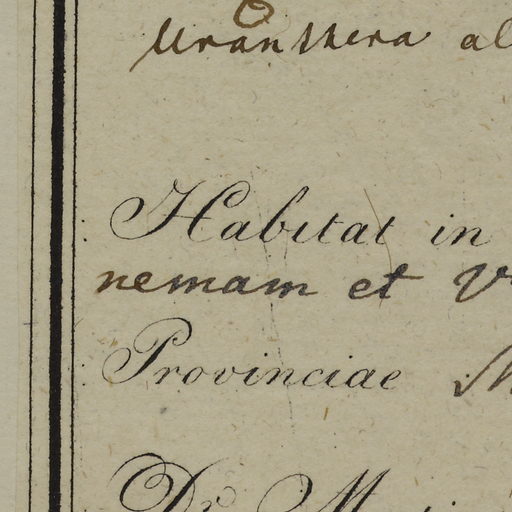 Uranthera al
Habitat in
nemam et
Provinciae
Dr. Martiu